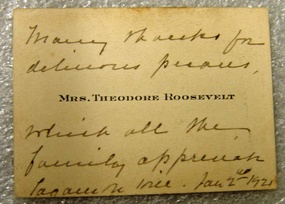 Many thanks for
delicious pecans,
MRS. THEODORE ROOSEVELT
which all the
family appreciate
Sagamore Hill. Jan 2nd 1921